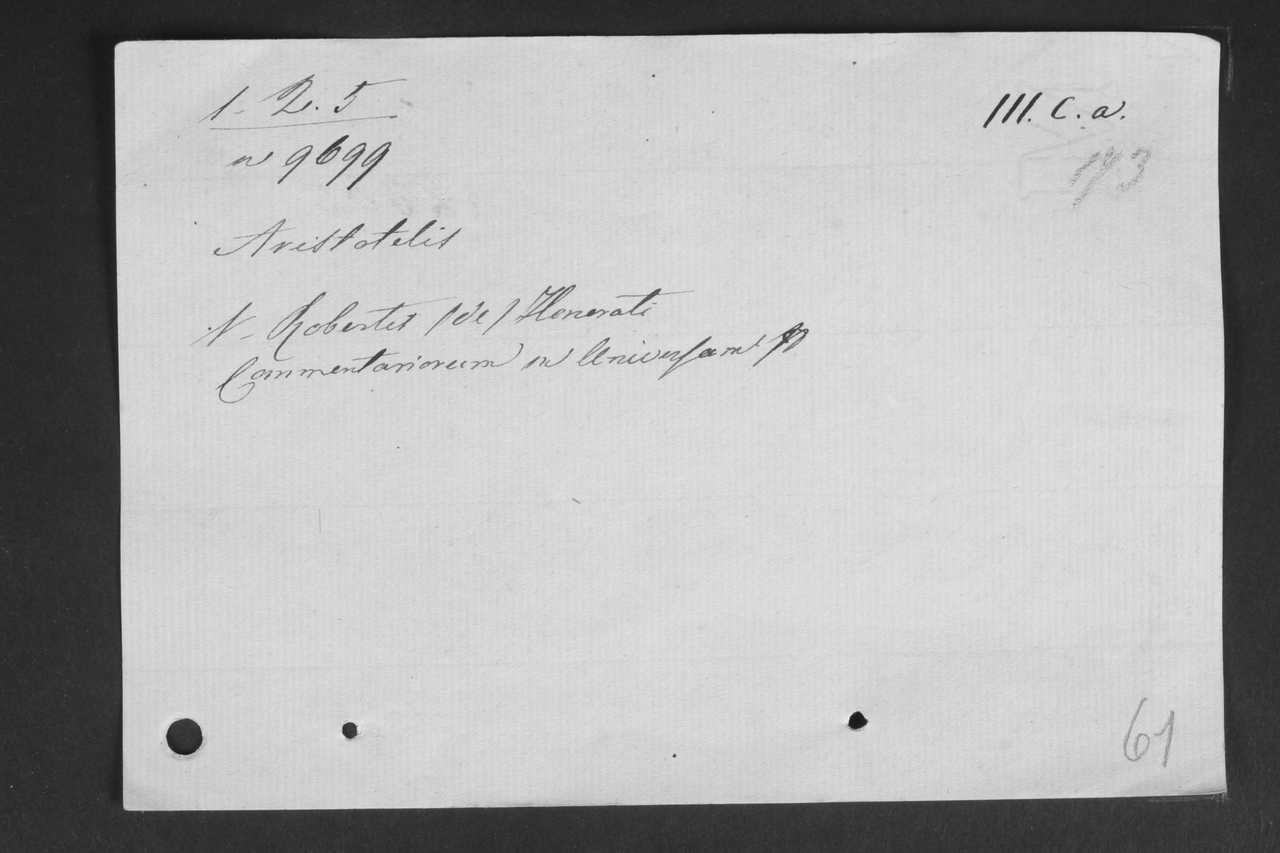 1- 2. 5
III. C. a.
n 9699
173
Aristotelis
V- Robertis (de) Honorati
Commentariorum in Universam
61